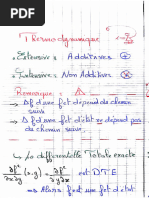 Thermodynamique
Extensive : Additives ⊕
Intensive : Non Additives
Remarque : ⚠
Δf d'une fct dépend du chemin
suivi.
Δf d'une fct d'état ne dépend pas
du chemin suivi.
la différentielle Totale exacte
(x,y)
est DTE
Alors f est une fct d'état